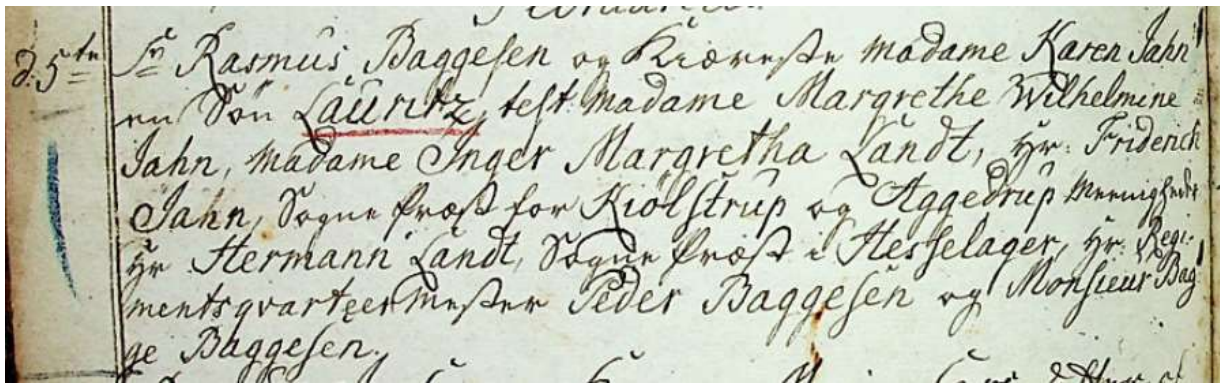 Februarius
d. 5te Sr Rasmus Baggesen og Kiæreste Madame Karen Jahn
en Søn Lauritz, test. Madame Margrethe Wilhelmine
Jahn, Madame Inger Margretha Landt, Hr. Friderich
Jahn, Sogne Præst for Kiølstrup og Aggedrup Meenigheder
Hr. Hermann Landt, Sogne Præst i Hesselager, Hr. Regi-
mentsqvarteerMester Peder Baggesen og Monsieur Bag
ge Baggesen.